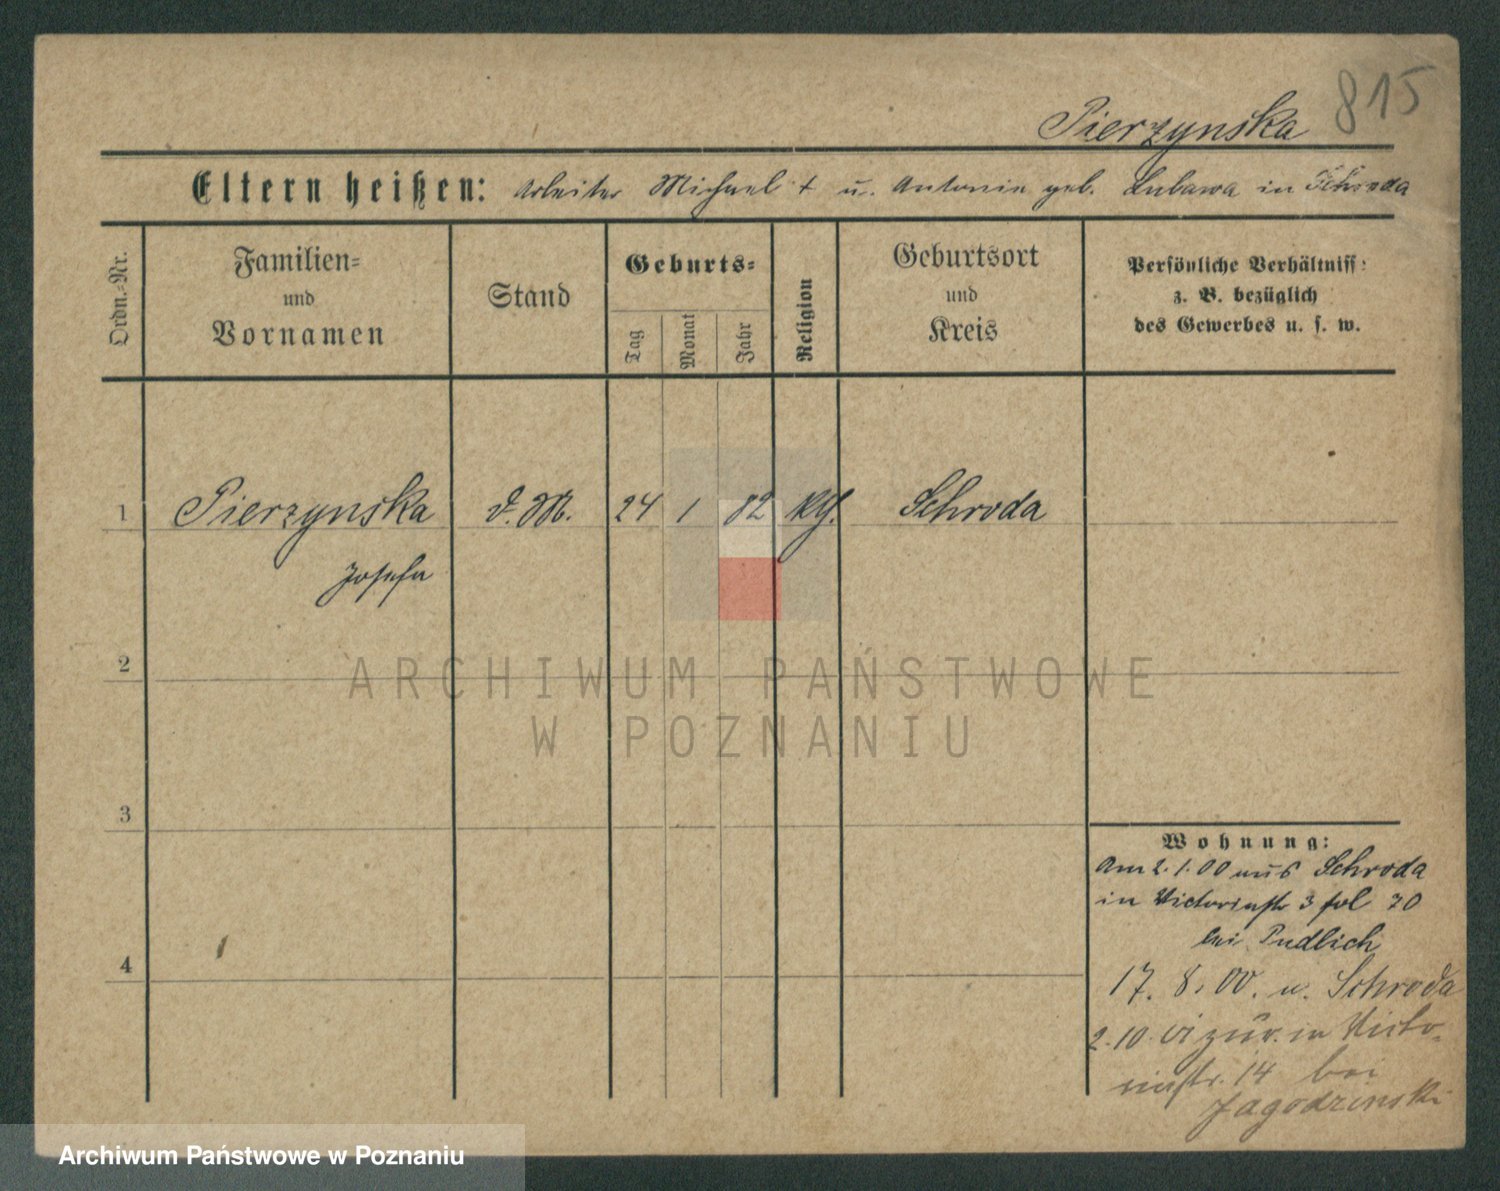 815
Pierzynska
Eltern heißen: Arbeiter Michael † u. Antonie geb. Lubawa in Schroda
Ordn.-Nr.
Familien-
und
Vornamen
Stand
Geburts-
Tag
Monat
Jahr
Religion
Geburtsort
und
Kreis
Persönliche Verhältniss
z. B. bezüglich
des Gewerbes u. s. w.
1 Pierzynska d. M. 24 1 82 kth. Schroda
Josefa
2
ARCHIWUM PAŃSTWOWE
W POZNANIU
3
Wohnung:
Am 2.1.00 aus Schroda
in Victoriastr 3 fol 70
bei Pudlich
4
17. 8. 00. n. Schroda
2.10. 01 zur. in Victo-
riastr. 14 bei
Jagodzinski
Archiwum Państwowe w Poznaniu